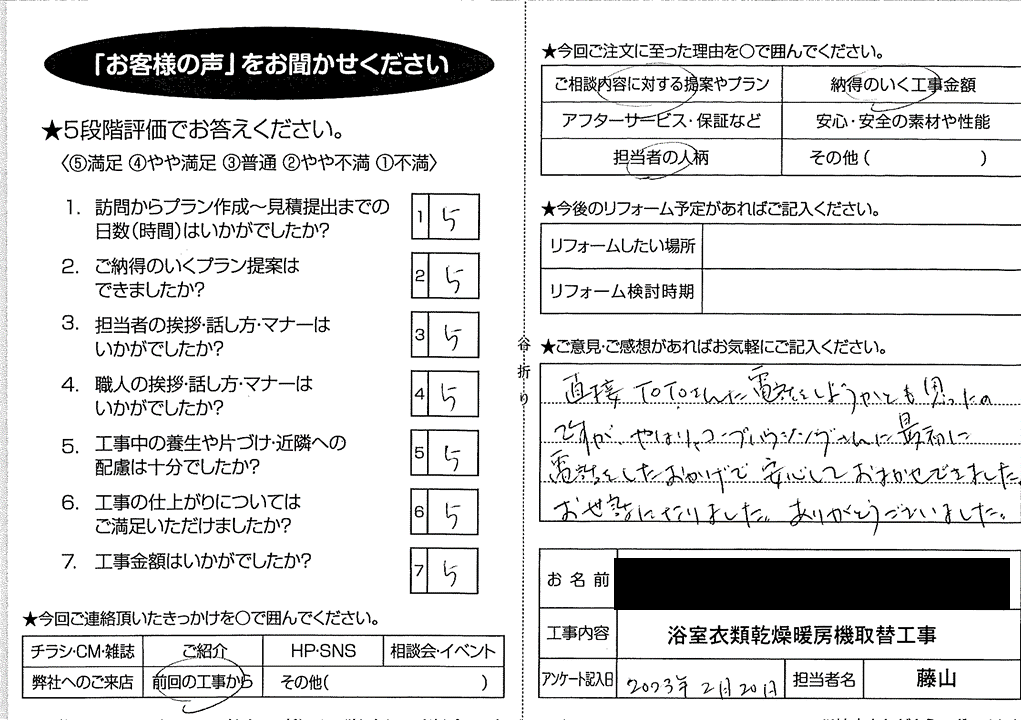 「お客様の声」をお聞かせください
★5段階評価でお答えください。
〈⑤満足 ④やや満足 ③普通 ②やや不満 ①不満〉
1. 訪問からプラン作成〜見積提出までの
日数(時間)はいかがでしたか?
1 5
2. ご納得のいくプラン提案は
できましたか?
2 5
3. 担当者の挨拶・話し方・マナーは
いかがでしたか?
3 5
4. 職人の挨拶・話し方・マナーは
いかがでしたか?
4 5
5. 工事中の養生や片づけ・近隣への
配慮は十分でしたか?
5 5
6. 工事の仕上がりについては
ご満足いただけましたか?
6 5
7. 工事金額はいかがでしたか?
7 5
★今回ご連絡頂いたきっかけを○で囲んでください。
チラシ・CM・雑誌 ご紹介 HP・SNS 相談会・イベント
弊社へのご来店 前回の工事から その他( )
谷折り
★今回ご注文に至った理由を○で囲んでください。
ご相談内容に対する提案やプラン 納得のいく工事金額
アフターサービス・保証など 安心・安全の素材や性能
担当者の人柄 その他( )
★今後のリフォーム予定があればご記入ください。
リフォームしたい場所
リフォーム検討時期
★ご意見・ご感想があればお気軽にご記入ください。
直接TOTOさんに電話をしようかとも思ったの
ですが、やはり、コープハウジングさんに最初に
電話をしたおかげで安心しておまかせできました。
お世話になりました。ありがとうございました。
お名前
工事内容 浴室衣類乾燥暖房機取替工事
アンケート記入日 2023年2月20日 担当者名 藤山